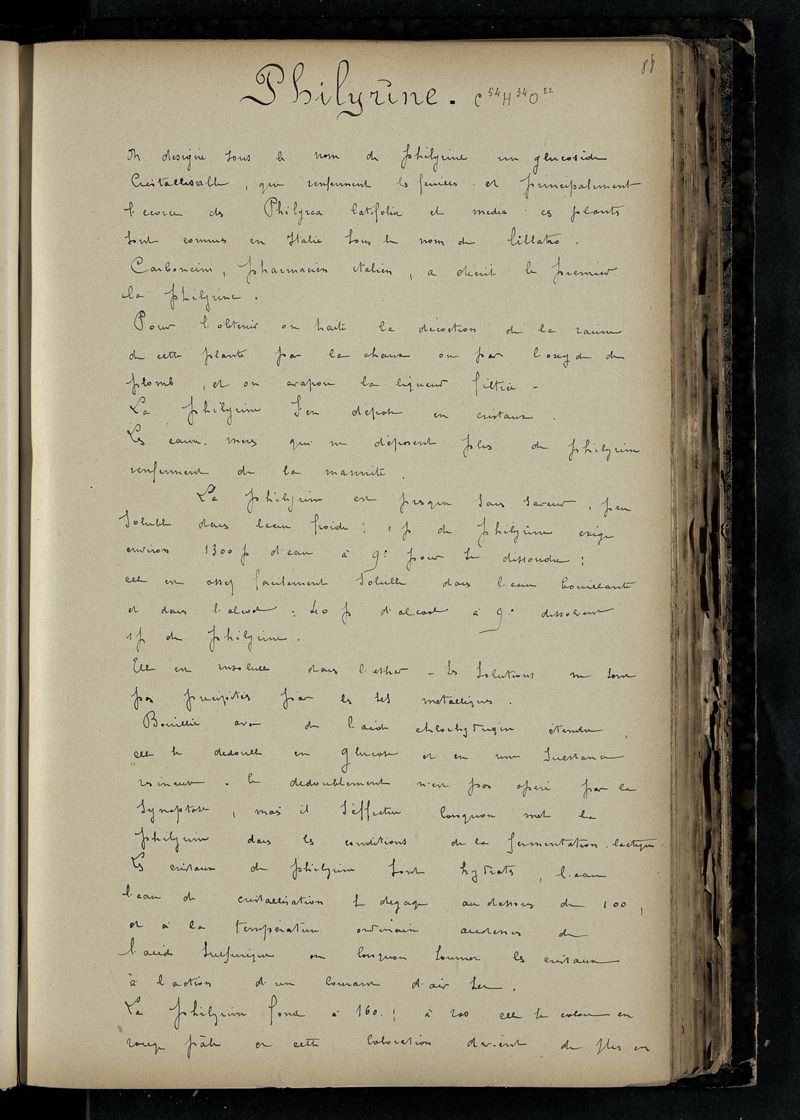 88
Philyrine. C⁵⁴H³⁴O²²
On designe sous le nom de philyrine un glucoside
Cristallisable, que renferment les feuilles et principalement
l'ecorce des Philyrea latifolia et media : ces plantes
sont connues en Italie sous le nom de lillatro.
Carboncini, pharmacien italien, a decrit le premier
la philyrine.
Pour l'obtenir on traite la decoction de la racine
de cette plante par la chaux ou par l'oxyde de
plomb, et on evapore la liqueur filtrée -
La philyrine s'en dépose en cristaux.
Les eaux meres qui ne déposent plus de philyrine
renferment de la mannite.
La philyrine est presque sans saveur, peu
soluble dans l'eau froide ; 1 p de philyrine exige
environ 1300 p d'eau à 9° pour se dissoudre ;
elle est assez facilement soluble dans l'eau bouillante
et dans l'alcool : 40 p d'alcool à 9° dissolvent
1 p de philyrine.
Elle est insoluble dans l'ether - les solutions ne sont
pas precipitées par les sels metalliques.
Bouillie avec de l'acide chlorhydrique étendu,
elle se dedouble en glucose et en une substance
resineuse. le dedoublement n'est pas opéré par la
synaptase, mais il s'effectue lorsquon met la
philyrine dans les conditions de la fermentation lactique.
Les cristaux de philyrine sont hydratés, l'eau
l'eau de cristallisation se degage au dessous de 100,
et à la température ordinaire au dessus de
l'acide sulfurique ou lorsquon soumet les cristaux
à l'action d'un courant d'air sec.
La philyrine fond à 160. ; à 200 elle se colore en
rouge pâle et cette coloration devient de plus en